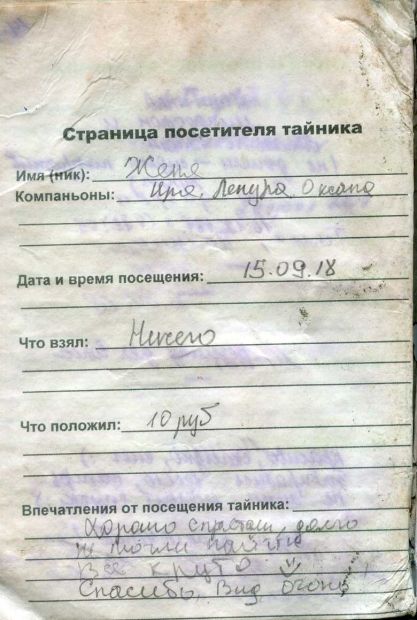 Страница посетителя тайника
Имя (ник): Женя
Компаньоны: Ира, Лепура Оксана
Дата и время посещения: 15.09.18
Что взял: Ничего
Что положил: 10 руб
Впечатления от посещения тайника:
Хорошо спрятали, долго
не могли найти
Все круто
Спасибо, Вид огонь